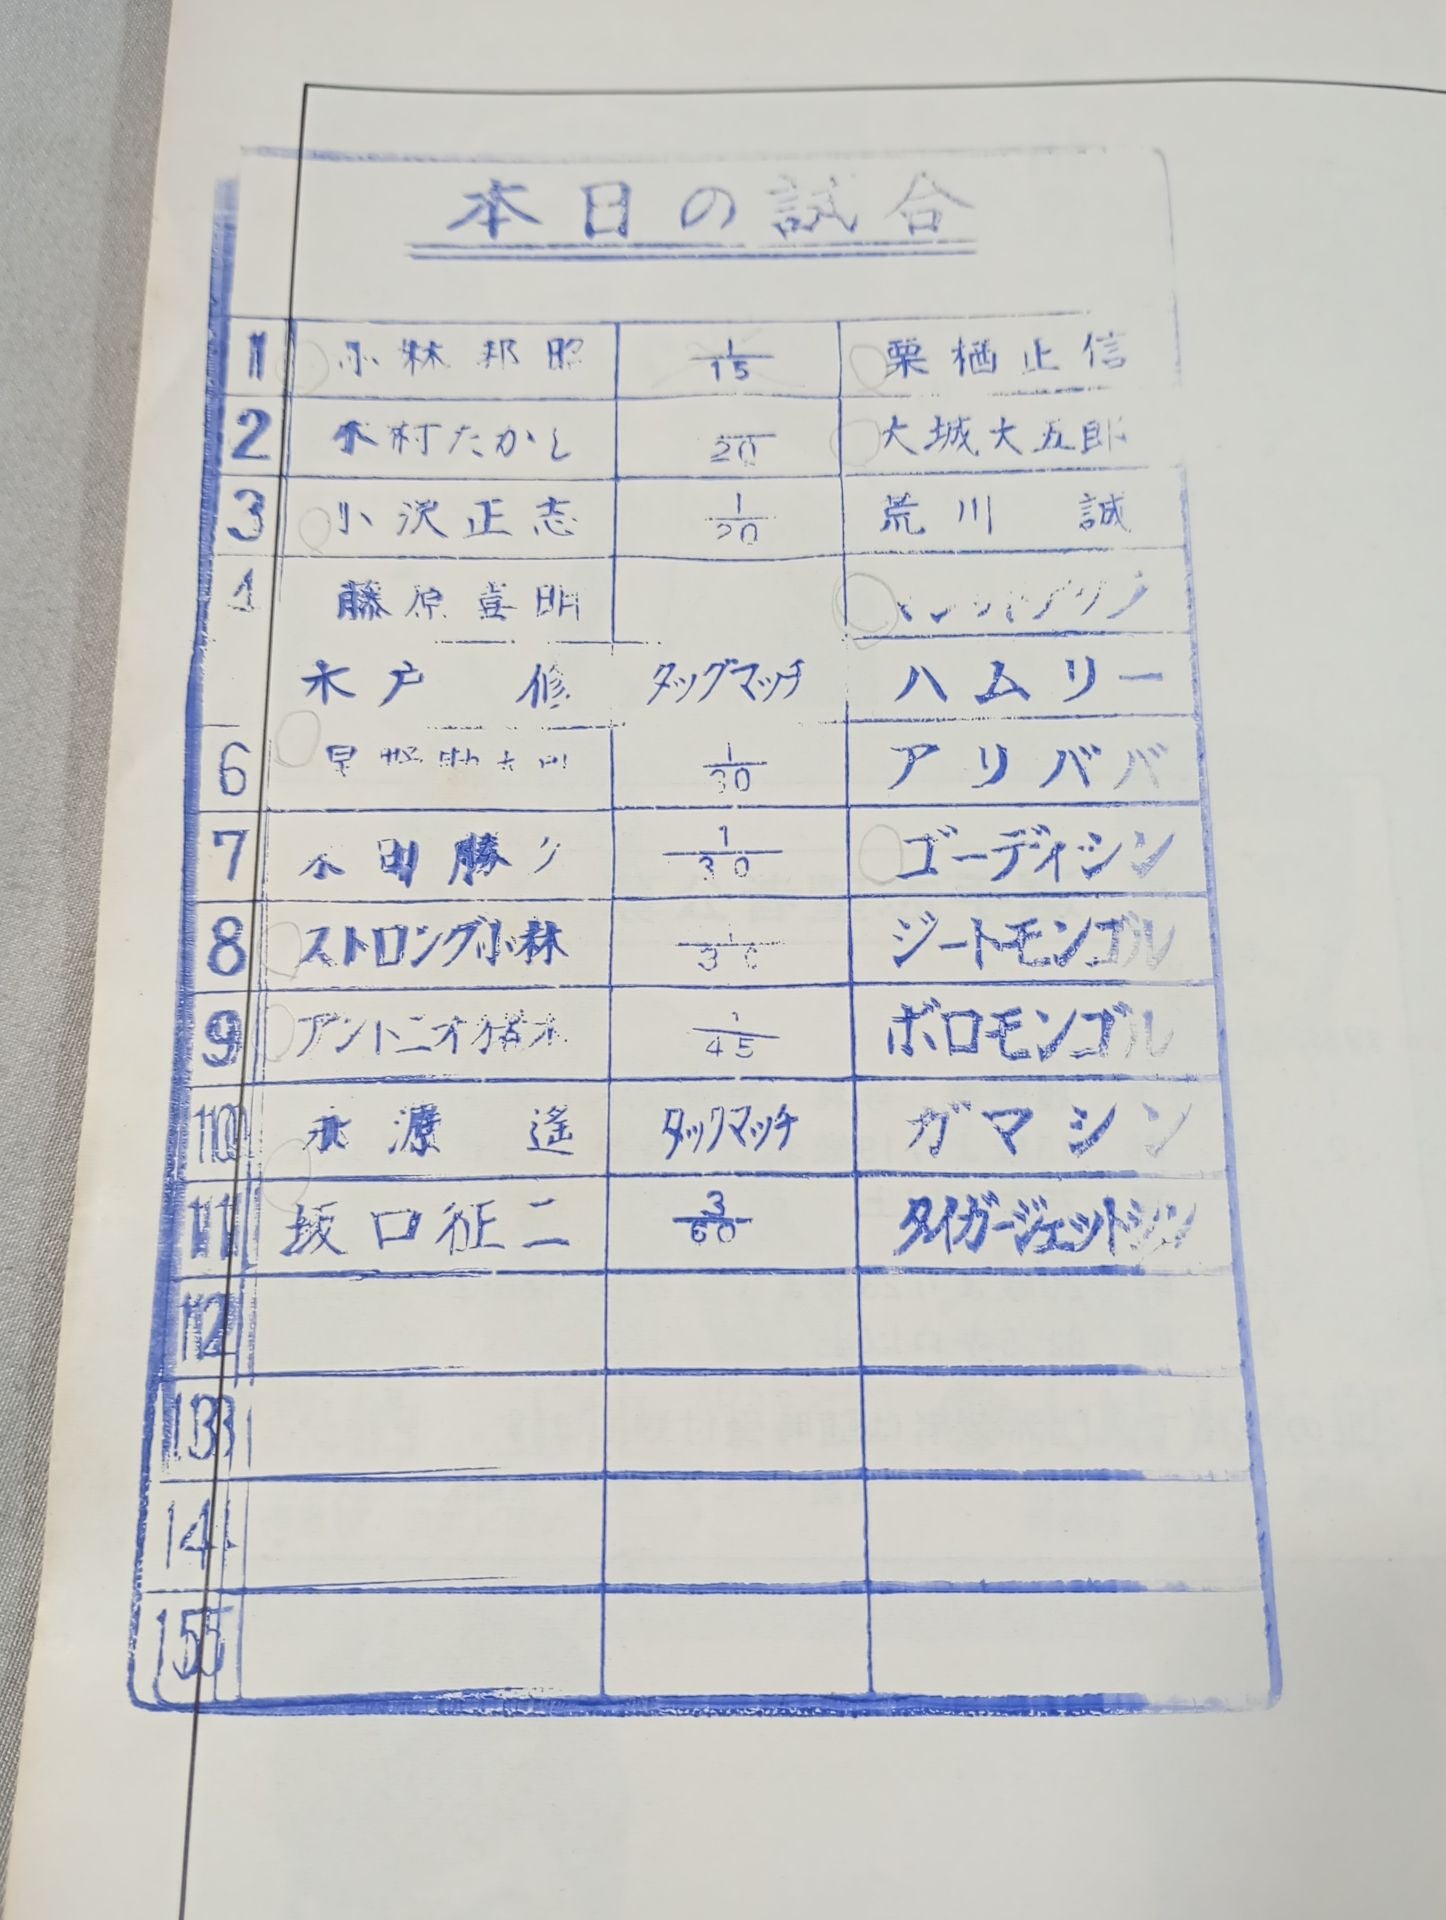 本日の試合
1 小林邦昭 1/15 栗栖正信
2 木村たかし 20 大城大五郎
3 小沢正志 1/20 荒川 誠
4 藤原喜明
木戸 修 タッグマッチ ハムリー
6 1/30 アリババ
7 木田勝ク 1/30 ゴーディシン
8 ストロング小林 1/30 ジートモンゴル
9 アントニオ猪木 1/45 ボロモンゴル
10 永源 遙 タックマッチ ガマシン
11 坂口征二 3/60 タイガージェットシン
12
13
14
15